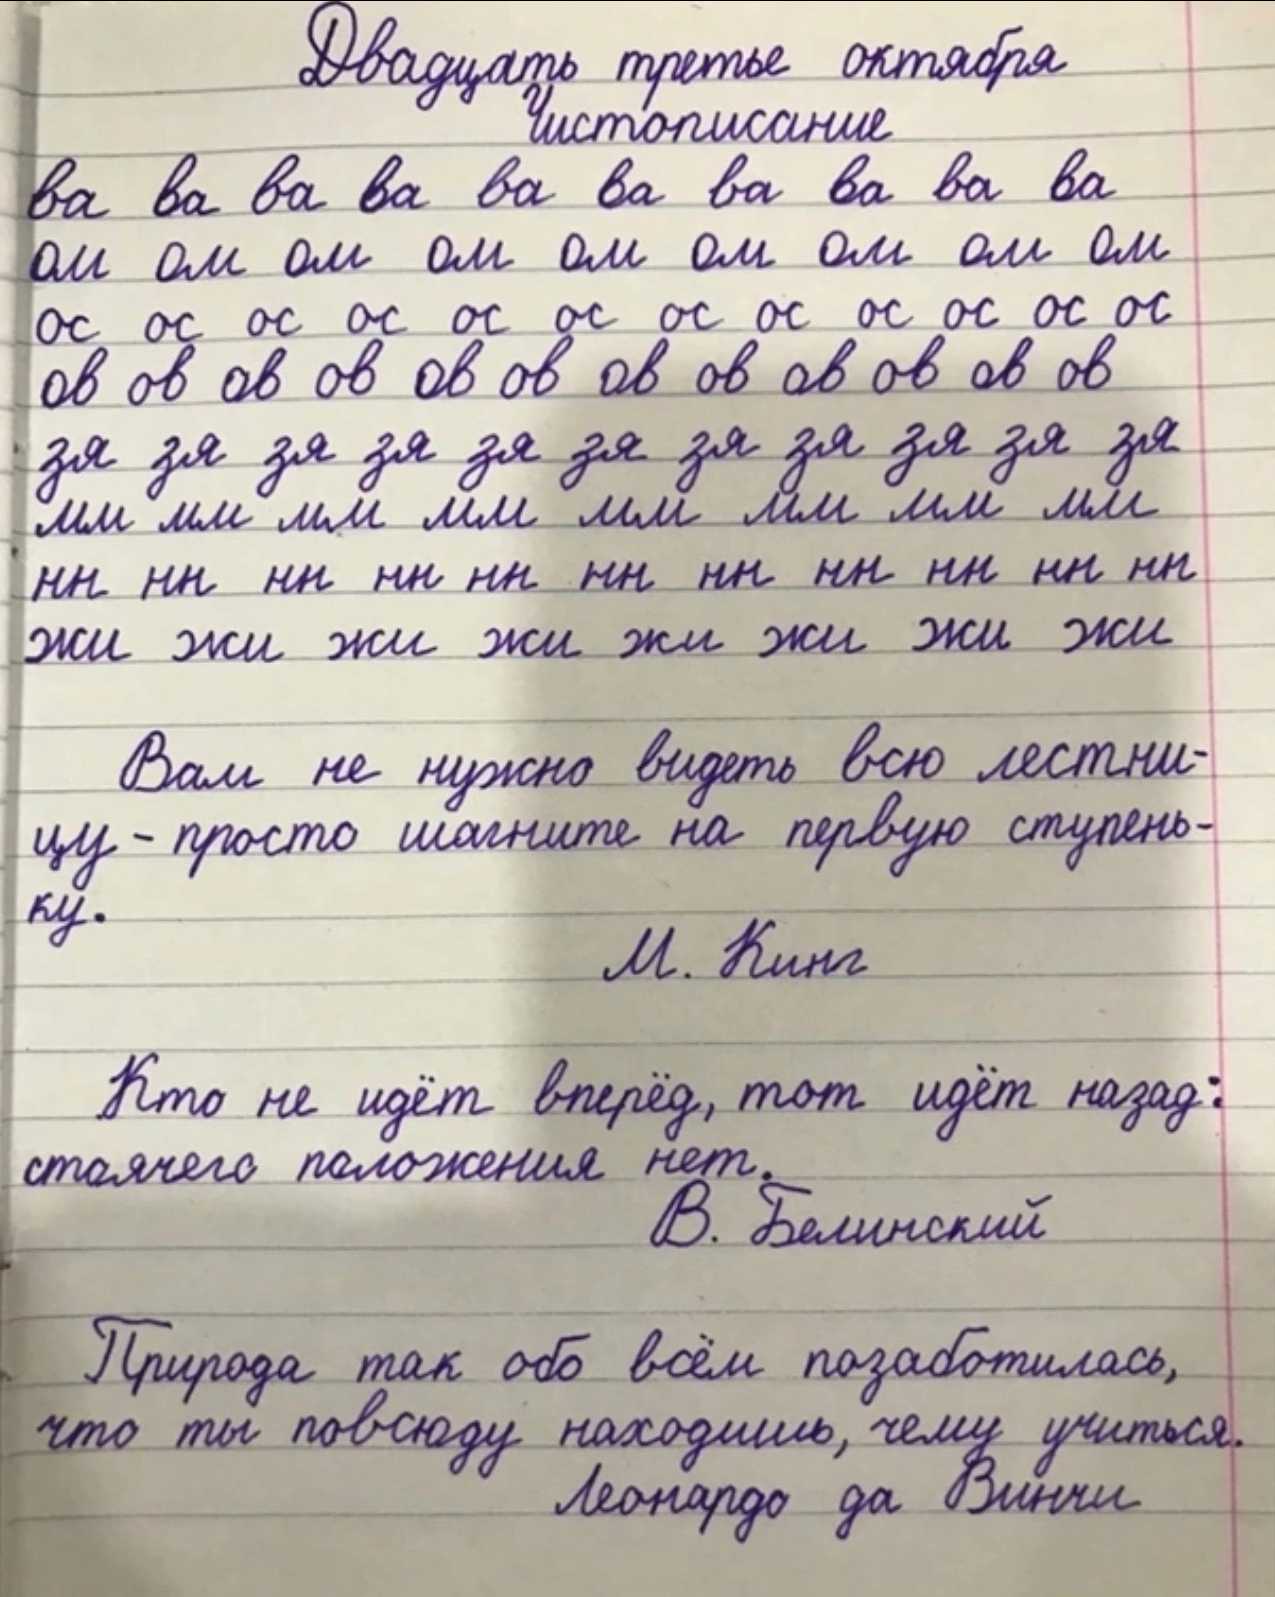 Двадцать третье октября
Чистописание
ва ва ва ва ва ва ва ва ва ва
ом ом ом ом ом ом ом ом ом
ос ос ос ос ос ос ос ос ос ос ос ос
ов ов ов ов ов ов ов ов ов ов ов ов
зя зя зя зя зя зя зя зя зя зя зя
мм мм мм мм мм мм мм мм
нн нн нн нн нн нн нн нн нн нн нн
жи жи жи жи жи жи жи жи
Вам не нужно видеть всю лестни-
цу - просто шагните на первую ступень-
ку.
М. Кинг
Кто не идёт вперёд, тот идёт назад:
стоячего положения нет.
В. Белинский
Природа так обо всём позаботилась,
что ты повсюду находишь, чему учиться.
Леонардо да Винчи